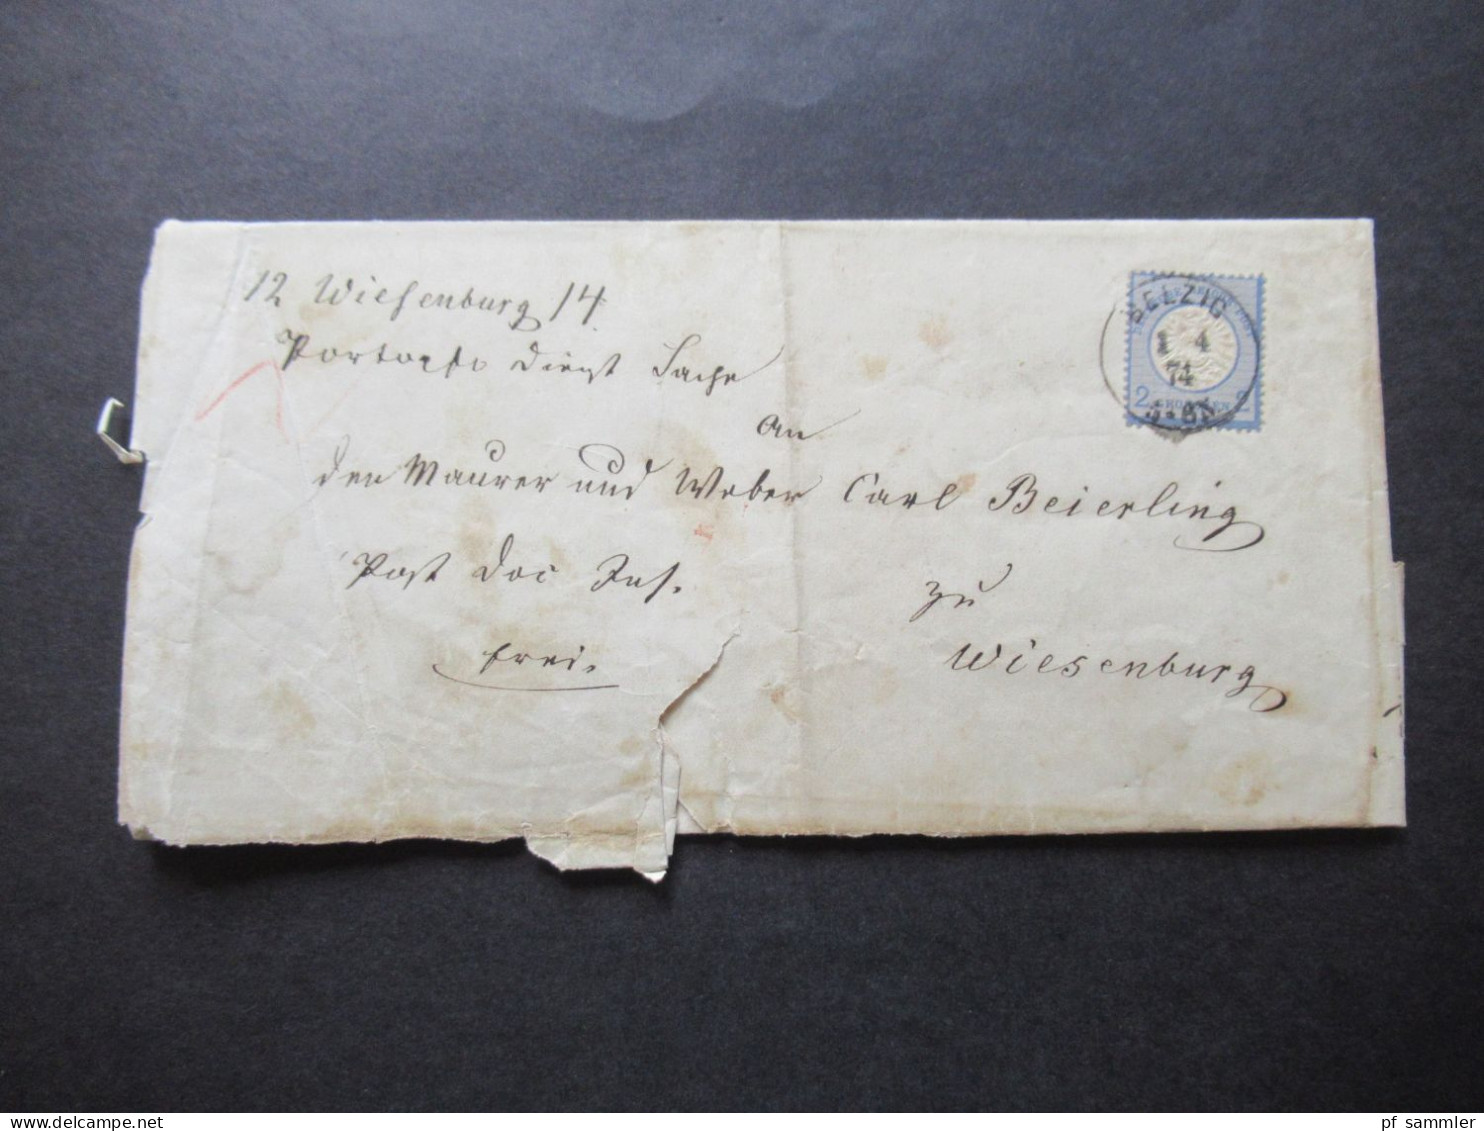 12 Wiesenburg 14
Portopfl. Dienst Sache
An
den Maurer und Weber Carl Beierling
Post Doc Ins.
zu
frei.
Wiesenburg
BELZIG
1 4
74
2 GROSCHEN 2
pf_sammler